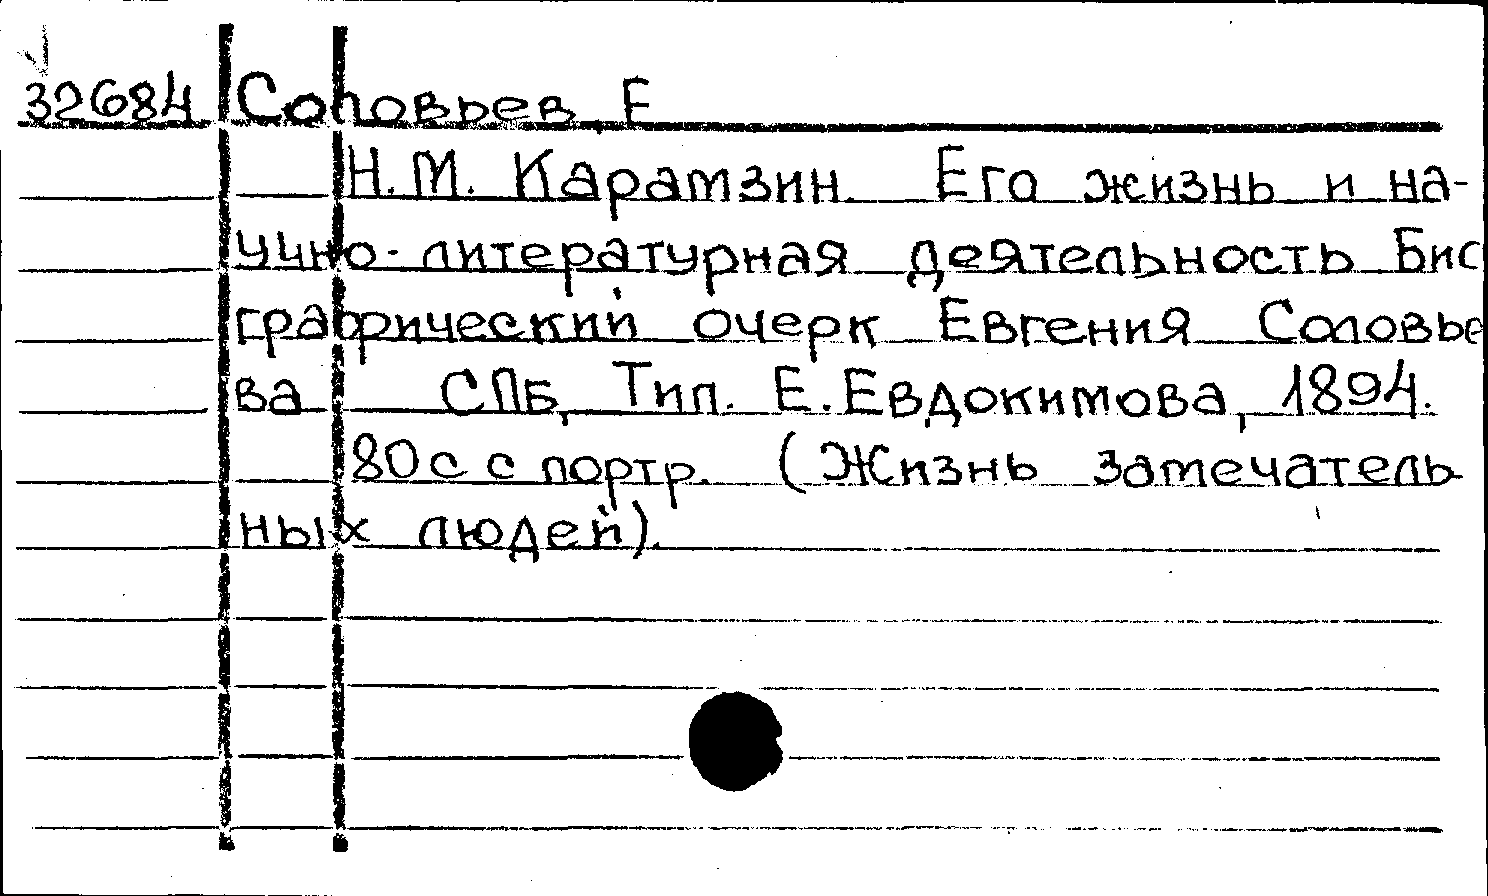 32684 Соловьев Е
Н.М. Карамзин. Его жизнь и на-
учно-литературная деятельность Био
графический очерк Евгения Соловье
ва СПБ, Тип. Е. Евдокимова, 1894.
80 с с портр. (Жизнь замечатель
ных людей).